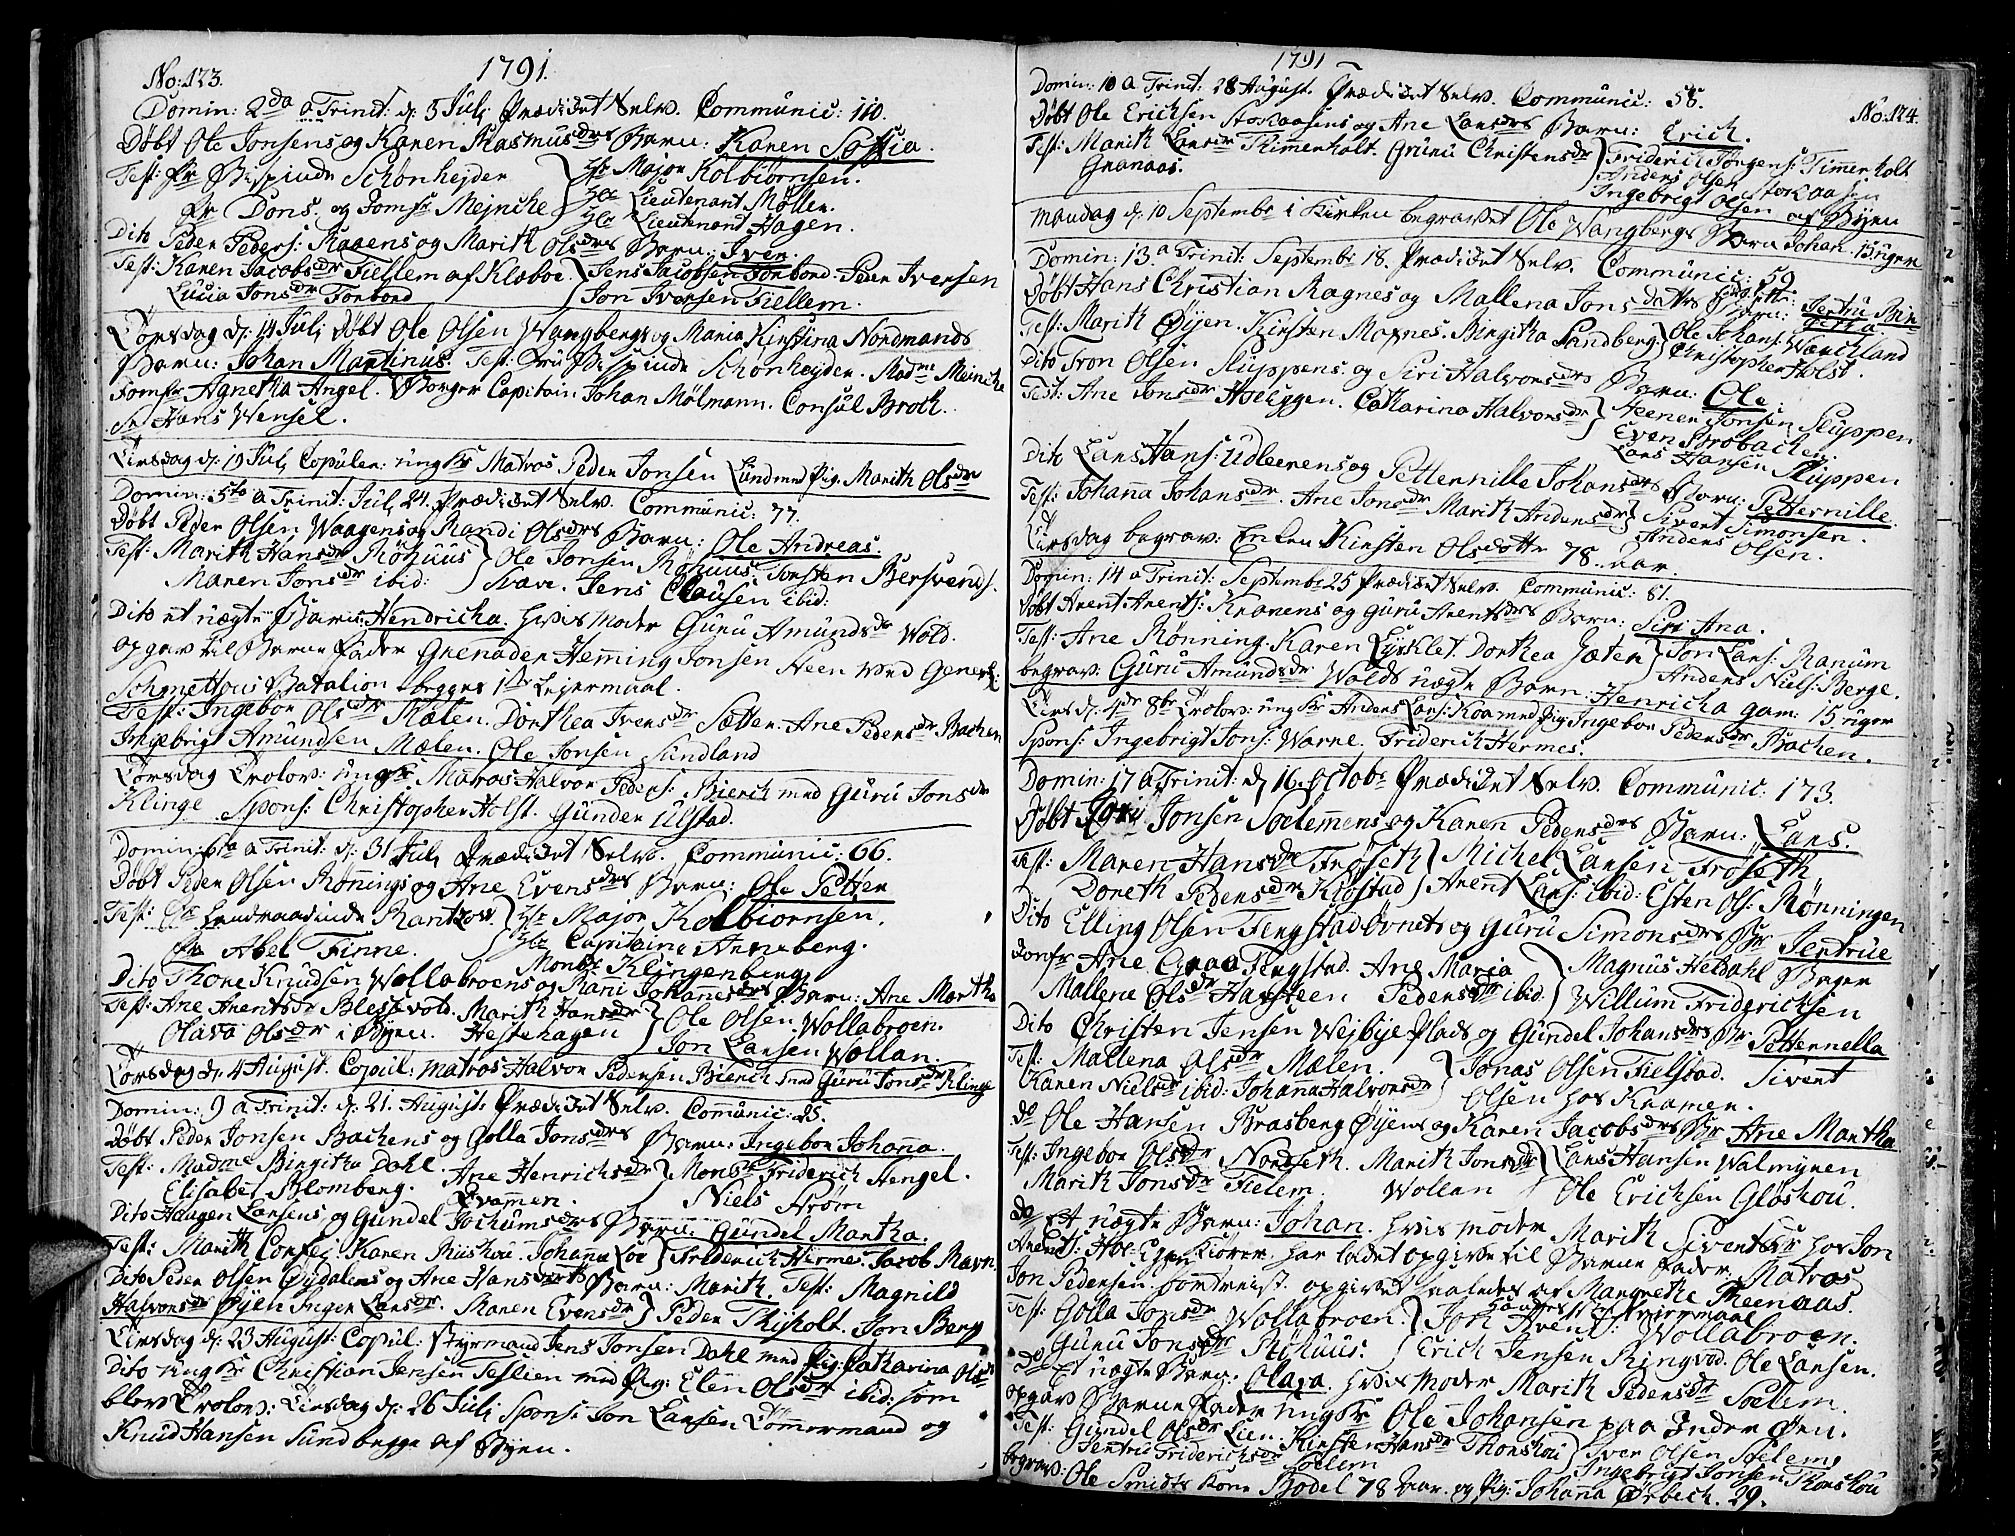 No: 123.
1791.
Domin: 2da a Trinit: d: 3 Julj Prædicket Selv. Communic: 110.
Døbt Ole Jonsens og Karen Rasmusdrs Barn: Karen Sofia.
Test: Fr Bispinde Schønheyder } Hr Major Kolbiørnsen.
Fr Dons. og Jomfr Meincke } Hr Lieutenant Møller.
Hr Lieutenant Hagen.
Dito Peder Peders: og Marith Olsdrs Barn: Iver.
Test: Karen Jacobsdr Fiellem af Klæboe. } Jens Jacobsen Forbord. Peder Iversen
Lucia Jonsdr Forbord } Jon Iversen Fiellem.
d: 14 Julj døbt Ole Olsen Wangbergs og Maria Kirstina Nordmands
Barn: Johan Martinus. Test: Fru Bispinde Schønheyder. Madme Meincke
Jomfr Agnetha Angel. Borger Capitain Johan Mølmann. Consul Broch.
Sr Hans Wensel.
Tirsdag d: 19 Julj Copuler: ungKr Matros Peder Jonsen Lund med Pig: Marith Olsdr
Domin: 5to a Trinit: Julj 24. Prædicket Selv. Communic: 77.
Døbt Peder Olsen Waagens og Randi Olsdrs Barn: Ole Andreas.
Test: Marith Hansdr Røhuus } Ole Jonsen Røhuus. Torsten Bersvends:
Maren Jonsdr ibid: } Jens Clausen ibid:
Dito et uægte Barn: Hendricka. hvis Moder Guru Amundsdr Wold.
opgav til Barne Fader Grenader Hemming Jonsen Heen ved General:
Schmettous Batalion begges 1ste Leiermaal.
Test: Ingebor Olsdr Mælen. Dorthea Iversdr Sætter. Ane Pedersdr Bachen
Ingebrigt Amundsen Mælen. Ole Jonsen Sundland
Trolov: ungKr Matros Halvor Peders: Bierck med Guru Jonsdr
Klinge Spons: Christopher Holst. Gunder Ulstad.
Domin: 6ta a Trinit: d: 31 Julj Prædicket Selv. Communic: 66.
Døbt Peder Olsen Rønnings og Ane Evensdrs Barn: Ole Petter
Test: Fr Landraadinde Rantzow } Hr Major Kolbiørnsen.
Fr Abel Finne. } Hr Capitaine Anneberg.
Monsr Klingenberg
Dito Thore Knudsen Wollabroens og Rani Johannesdrs Barn: Ane Martha
Test: Ane Arentsdr Blessevold. Marith Hansdr } Ole Olsen Wollabroen.
Olava Olsdr i Byen. Hestehagen } Jon Larsen Wollan.
d: 4 August. Copul: matros Halvor Pedersen Bierck med Guru Jonsdr Klinge
Domin: 9 a Trinit: d: 21. August. Prædicket Selv. Communic: 25.
Døbt Peder Jonsen Bachens og Golla Jonsdrs Barn: Ingebor Johanna.
Test: Madme Birgitha Dahl. Ane Henrichsdr } Monsr Friderich Hengel.
Elisabet Blomberg. Qvammen. } Niels Strøm
Dito Haagen Larsens og Gundel Jochumsdrs Barn: Gundel Martha.
Test: Marith Karen Johanna Loe } Friderich Hermes. Jacob Ravn
Dito Peder Olsen Øydalens og Ane Hansdrs Barn: Marith. Test: Magnild
Halvorsdr Øyen Inger Larsdr. Maren Evensdr } Peder Thisholt. Jon Berg
Tirsdag d: 23 August: Copul: Styrmand Jens Jonsen Dahl med Pig: Catharina Olsdr
Dito ungKr Christian Jensen Teslien med Pig: Elen Olsdr ibid: som
blev Trolov: Tirsdag d: 26 Julj Spons: Jon Larsen Tømmermand og
Knud Hansen Sund begge af Byen.
1791
No: 124.
Domin: 10 a Trinit: 28 August. Prædicket Selv. Communic: 58.
Døbt Ole Ericksen Storaasens og Ane Larsdrs Barn: Erich.
Test: Marith Larsdr Timmerholt. Guru Christensdr } Friderich Jørgens: Timmerholt
Granaas. Anders Olsen Storaasen
Ingebrigt Olsen af Byen
Mandag d: 10 Septembr i Kirken begravet Ole Wangbergs Barn Johan. 15 uger
Domin: 13 a Trinit: Septembr 18. Prædicket Selv. Communic: 59
Døbt Hans Christian Ragnes og Mallena Jonsdatters Barn: Jertru Bir-
gitta.
Test: Marith Øyen. Kirsten Moxnes. Birgitha Sandberg. } Ole Johans: Warchland
Christopher Holst.
Dito Tron Olsen Sluppens og Siri Halvorsdrs Barn: Ole.
Test: Ane Jonsdr Hoeggen. Catharina Halvorsdr } Steener Jonsen Sluppen
Even Strobach.
Lars Hansen Sluppen
Dito Lars Hans: Udleerens og Petternille Johansdrs Barn: Petternille.
Test: Johanna Johansdr. Ane Jonsdr Marith Andersdr } Sivert Simonsen.
Anders Olsen.
Tirsdag begrav: Enken Kirsten Olsdotter 78. aar.
Domin: 14 a Trinit: Septembr 25 Prædicket Selv. Communic: 81.
Døbt Arent Arents: Kravens og Guru Arentsdrs Barn: Siri Ana.
Test: Ane Rønning. Karen Dorthea Jæter } Jon Lars: Ranum
Anders Niels: Berge.
begrav: Guru Amundsdr Wolds uægte Barn: Henricha gam: 15 uger
Tirs d: 4de 8br Trolov: ungKr Anders Lars: Koa med Pig: Ingebor Pedersdr Bachen.
Spons: Ingebrigt Jons: Warne. Friderich Hermes.
Domin: 17 a Trinit: d: 16. Octobr Prædicket Selv. Communic: 173.
Døbt Jonsen Soelemens og Karen Pedersdrs Barn: Lars.
Test: Maren Hansdr Frøseth } Michel Larsen Frøseth
Doreth Pedersdr Kiøstad } Arent Lars: ibid: Esten Ols: Rønningen
Dito Elling Olsen Fergstadøvrets og Guru Simonsdrs Br Jertrue
Jomfr Ane Graa Fergstad. Ane Maria } Magnus Heldahl Bager
Mallene Olsdr Harsteen Pedersdr ibid. } Willum Friderichsen
Dito Christen Jensen Wejbye Plads og Gundel Johansdrs Br Petternella
Test: Mallena Olsdr Malen. } Jonas Olsen Fielstad. Sivert
Karen Nielsdr ibid: Johanna Halvorsdr } Olsen hos Kramer.
do Ole Hansen Brasberg Øyens og Karen Jacobsdrs Br Ane Martha
Test: Ingebor Olsdr Nordseth. Marith Jonsdr } Lars Hansen Walmyren
Marith Jonsdr Fielem. Wollan } Ole Ericksen Gløshou.
do Et uægte Barn: Johan. hvis moder Marith Sivertsdr hos Jon
Arent: har ladet opgive til Barne Fader Matros
Jon Pedersen opgivet saaledes af Margrethe Steenaas.
begges Leiermaal
Test: Golla Jonsdr Wollabroen. } Jon Arent: Wollabroen.
Guru Jonsdr Røhuus. } Erich Jensen Ringvod. Ole Larsen.
do Et uægte Barn: Olava. hvis Moder Marith Pedersdr Soelem.
opgav Barne Fader ungKr Ole Johansen paa Inder Øen.
Test: Gundel Olsdr Lien. Kirsten Hansdr Thonshou } Iver Olsen Soelem
Jertrue Friderichsdr Soelem } Ingebrigt Jonsen Thonshou
begrav: Ole Smidts Kone Bodel 78 Aar. og Pig: Johanna Ørbech. 29.